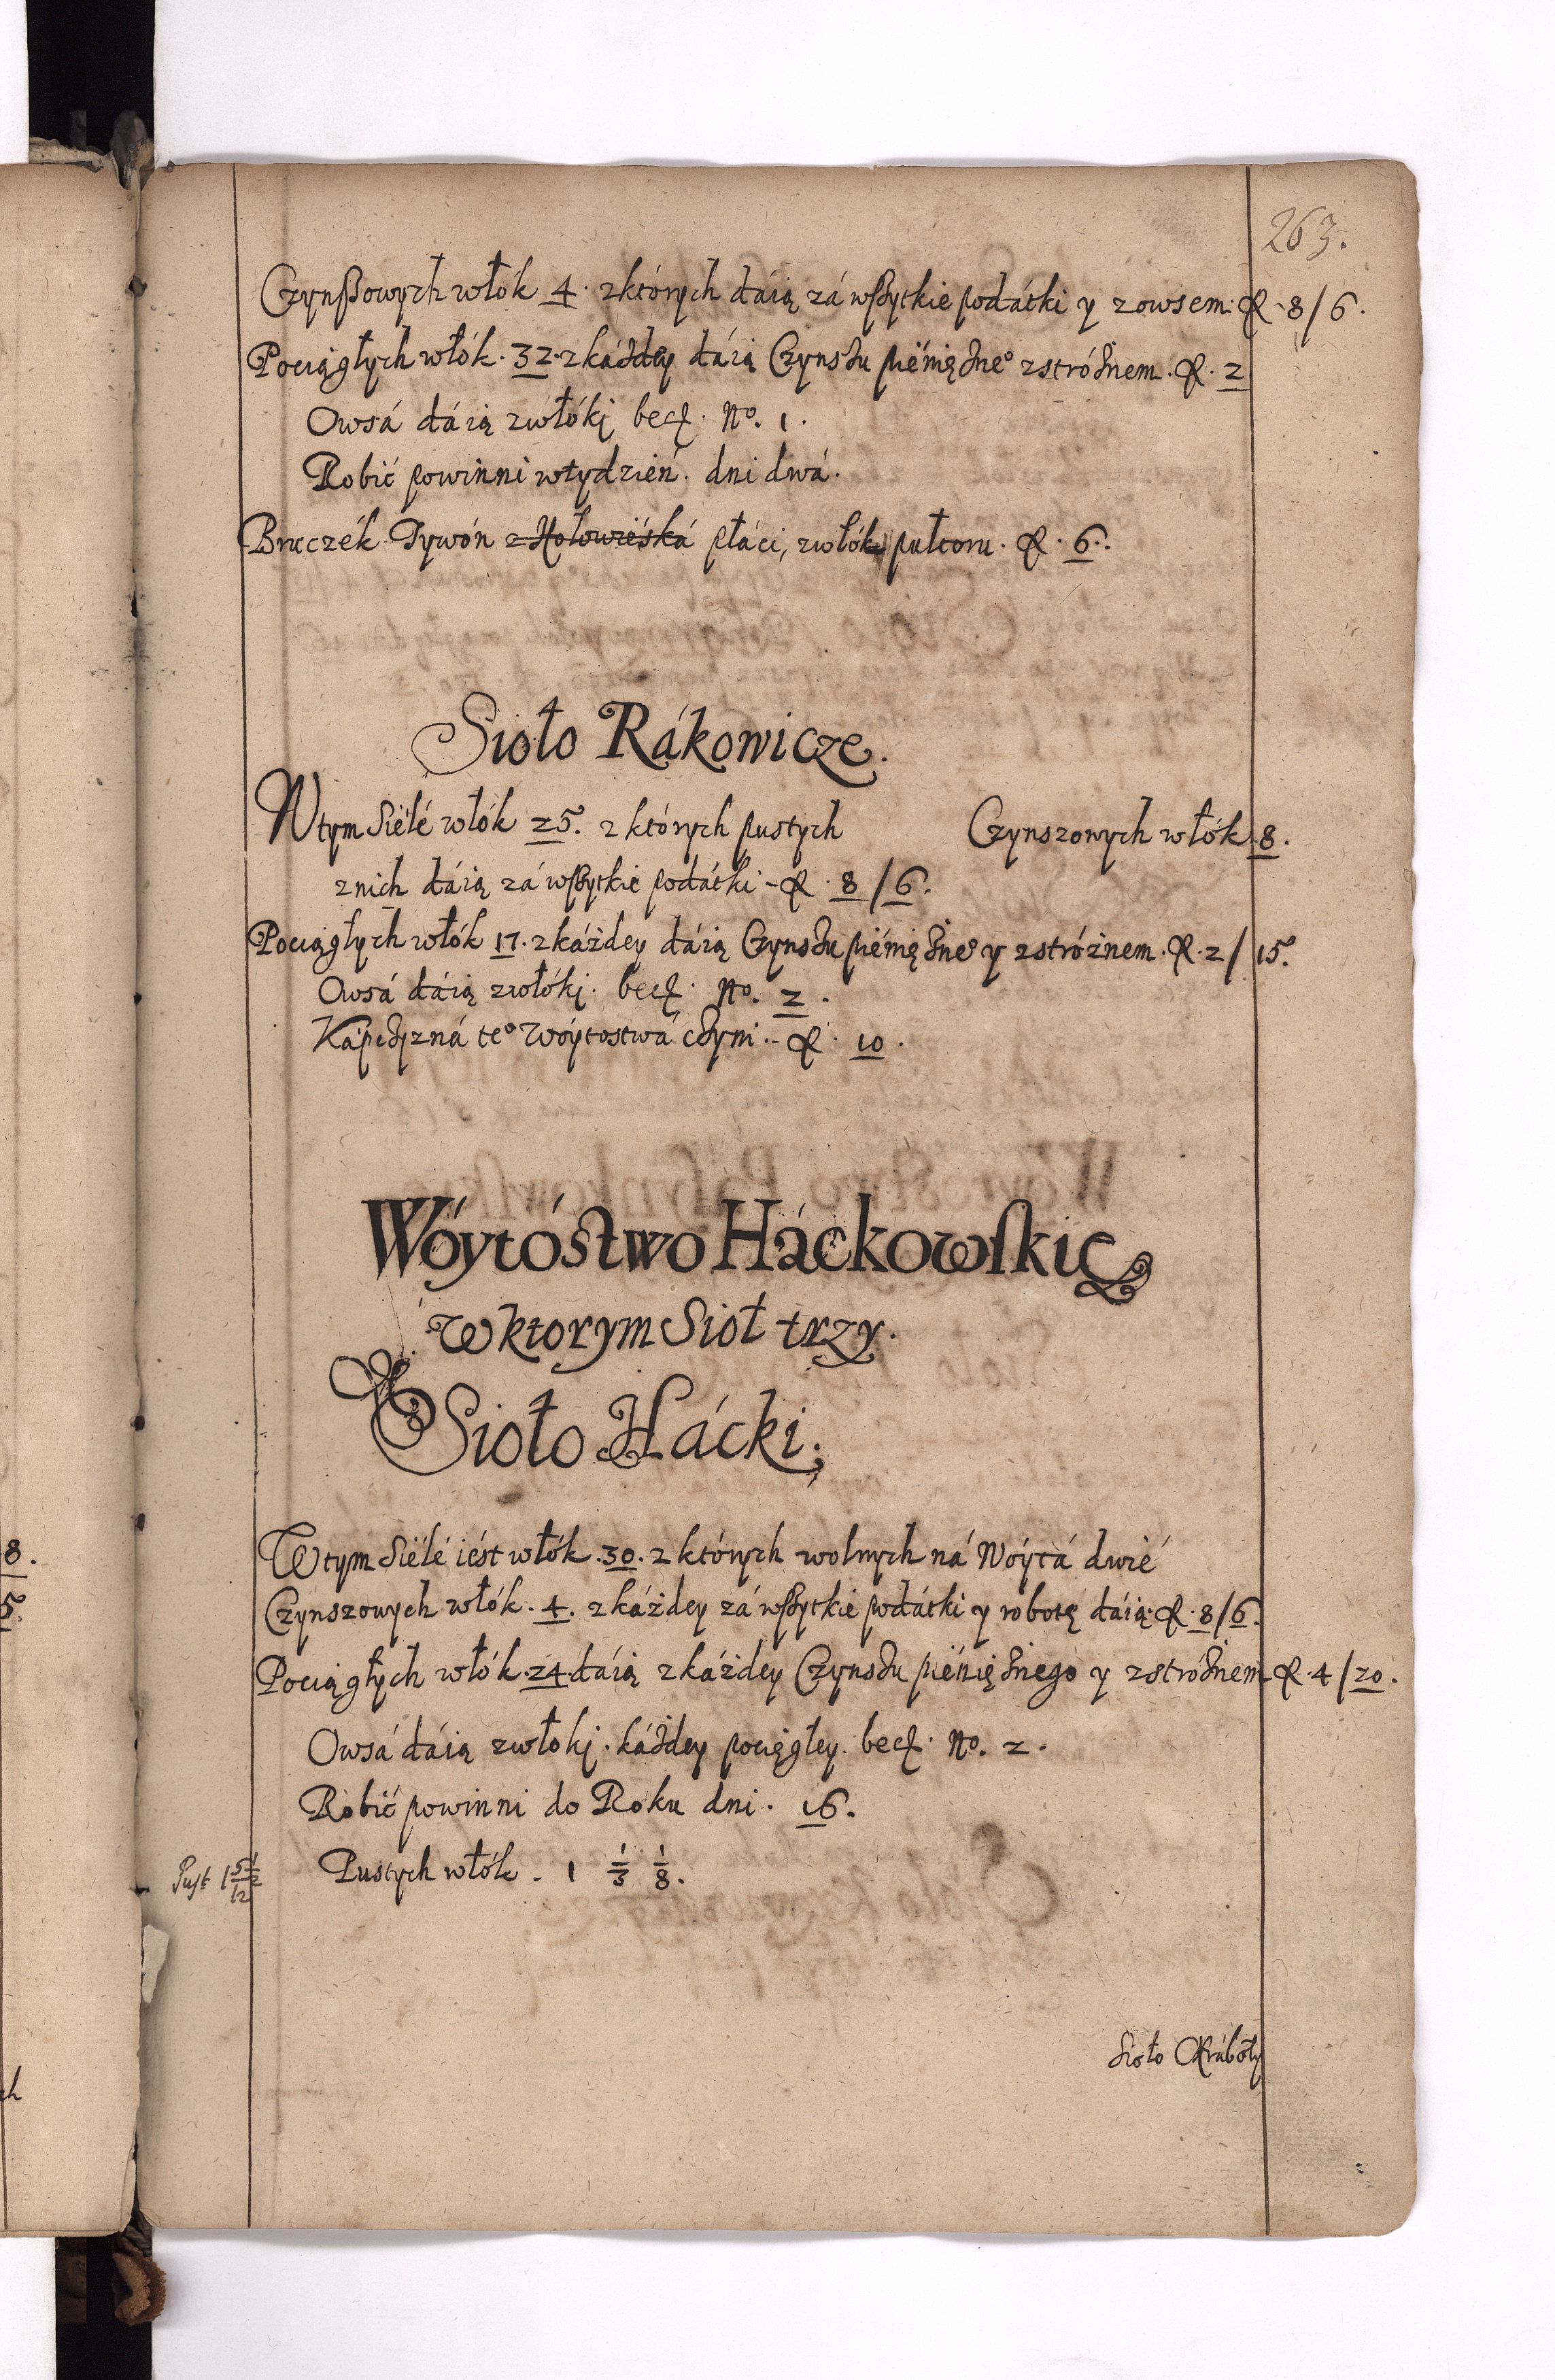 263.
Czynßowych włók 4. z których dáią zá wßytkie podátki y z owsem. fl. 8/6.
Pociągłych włók. 32. z káżdey dáią Czynszu pieniężne° z stróżnem. fl. 2
Owsá dáią z włóki becz. No. 1.
Robić powinni w tydzień. dni dwá.
Bruczék Tywón z Hołowieská płáci, z włók pułtoru. fl. 6.
Sioło Rákowicze.
W tym Siele włók 25. z których pustych Czynszowych włók 8.
z nich dáią zá wßytkie podátki - fl. 8/6.
Pociągłych włók 17. z káżdey dáią Czynszu pieniężne° y z stróżnem. fl. 2/15.
Owsá dáią z włóki. becz. No. 2.
Kápczyzná te° Wóytostwá czyni.- fl. 10.
Wóytóstwo Háckowskie
W ktorym Sioł trzy.
Sioło Hácki.
W tym Siele iést włók .30. z których wolnych ná Wóytá dwié
Czynszowych włók .4. z káżdey zá wßytkie podátki y robotę dáią. fl. 8/6.
Pociągłych włók .24. dáią z káżdey Czynszu pieniężnego y z stróżnem fl. 4/20.
Owsá dáią z włoki. káżdey pociągłey. becz. No. 2.
Robić powinni do Roku dni. 16.
Pustych włók. 1 1/3 1/8.
Sioło Chráboły
8.
5.
ch